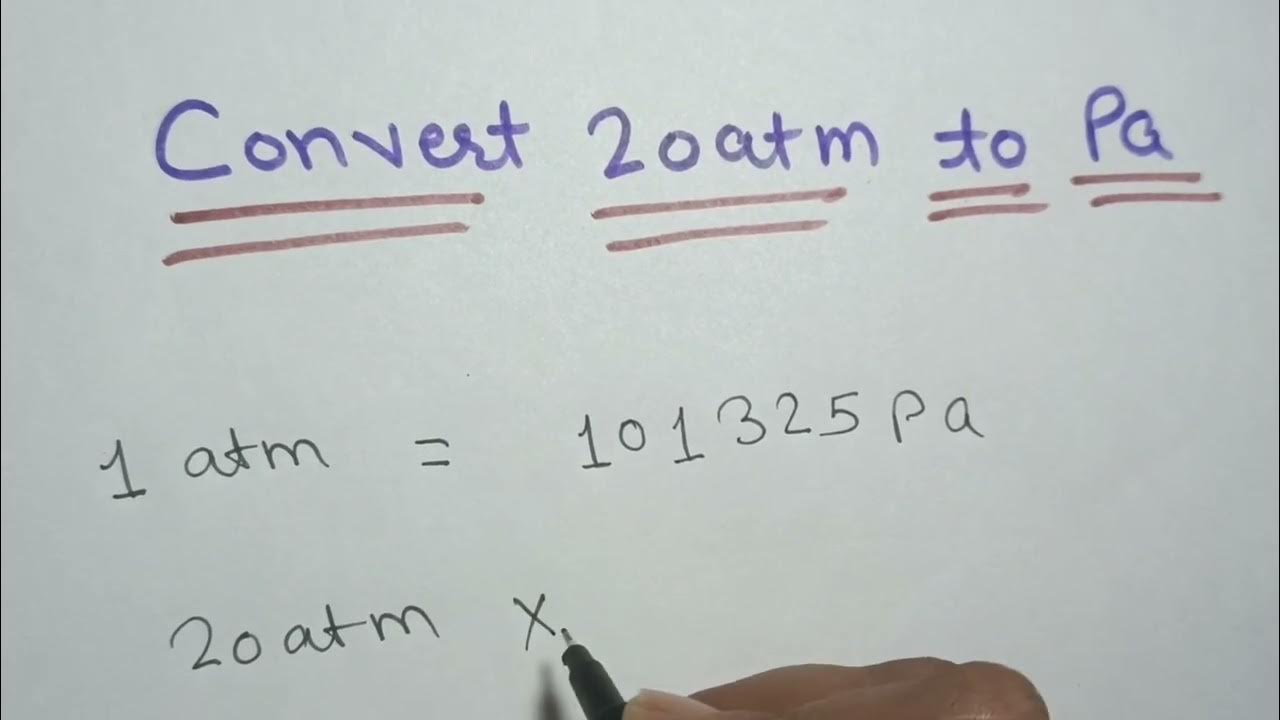 Convert 20atm to Pa
1 atm = 101325 Pa
20atm X